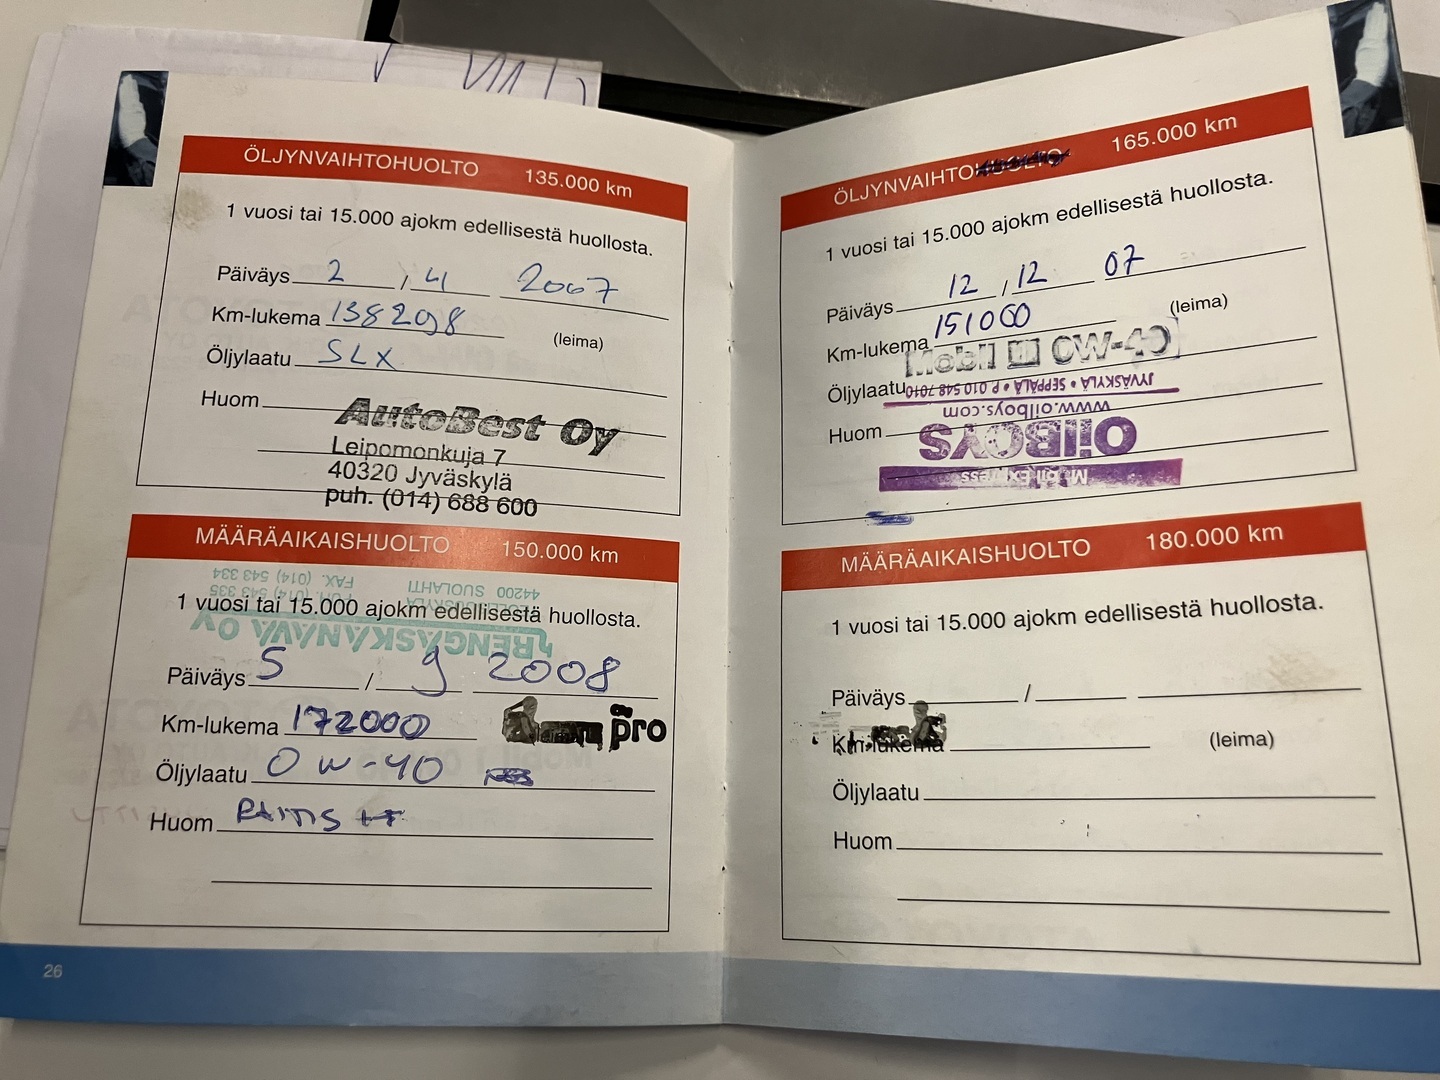 ÖLJYNVAIHTOHUOLTO 135.000 km
1 vuosi tai 15.000 ajokm edellisestä huollosta.
Päiväys 2 / 4 2007
Km-lukema 138298
(leima)
Öljylaatu SLX
Huom
AutoBest Oy
Leipomonkuja 7
40320 Jyväskylä
puh. (014) 688 600
MÄÄRÄAIKAISHUOLTO 150.000 km
RENGASKANAVA OY
44200 SUOLAHTI
PUH. (014) 543 335
FAX. (014) 543 334
1 vuosi tai 15.000 ajokm edellisestä huollosta.
Päiväys 5 / 9 2008
Km-lukema 172000
pro
Öljylaatu 0W-40
Huom
26
ÖLJYNVAIHTOHUOLTO 165.000 km
1 vuosi tai 15.000 ajokm edellisestä huollosta.
Päiväys 12 / 12 07
Km-lukema 151000
(leima)
Mobil 1 0W-40
Öljylaatu
Huom
Mobil Express
OilBOYS
www.oilboys.com
JYVÄSKYLÄ • SEPPÄLÄ • P. 010 548 7010
MÄÄRÄAIKAISHUOLTO 180.000 km
1 vuosi tai 15.000 ajokm edellisestä huollosta.
Päiväys /
Km-lukema
(leima)
Öljylaatu
Huom